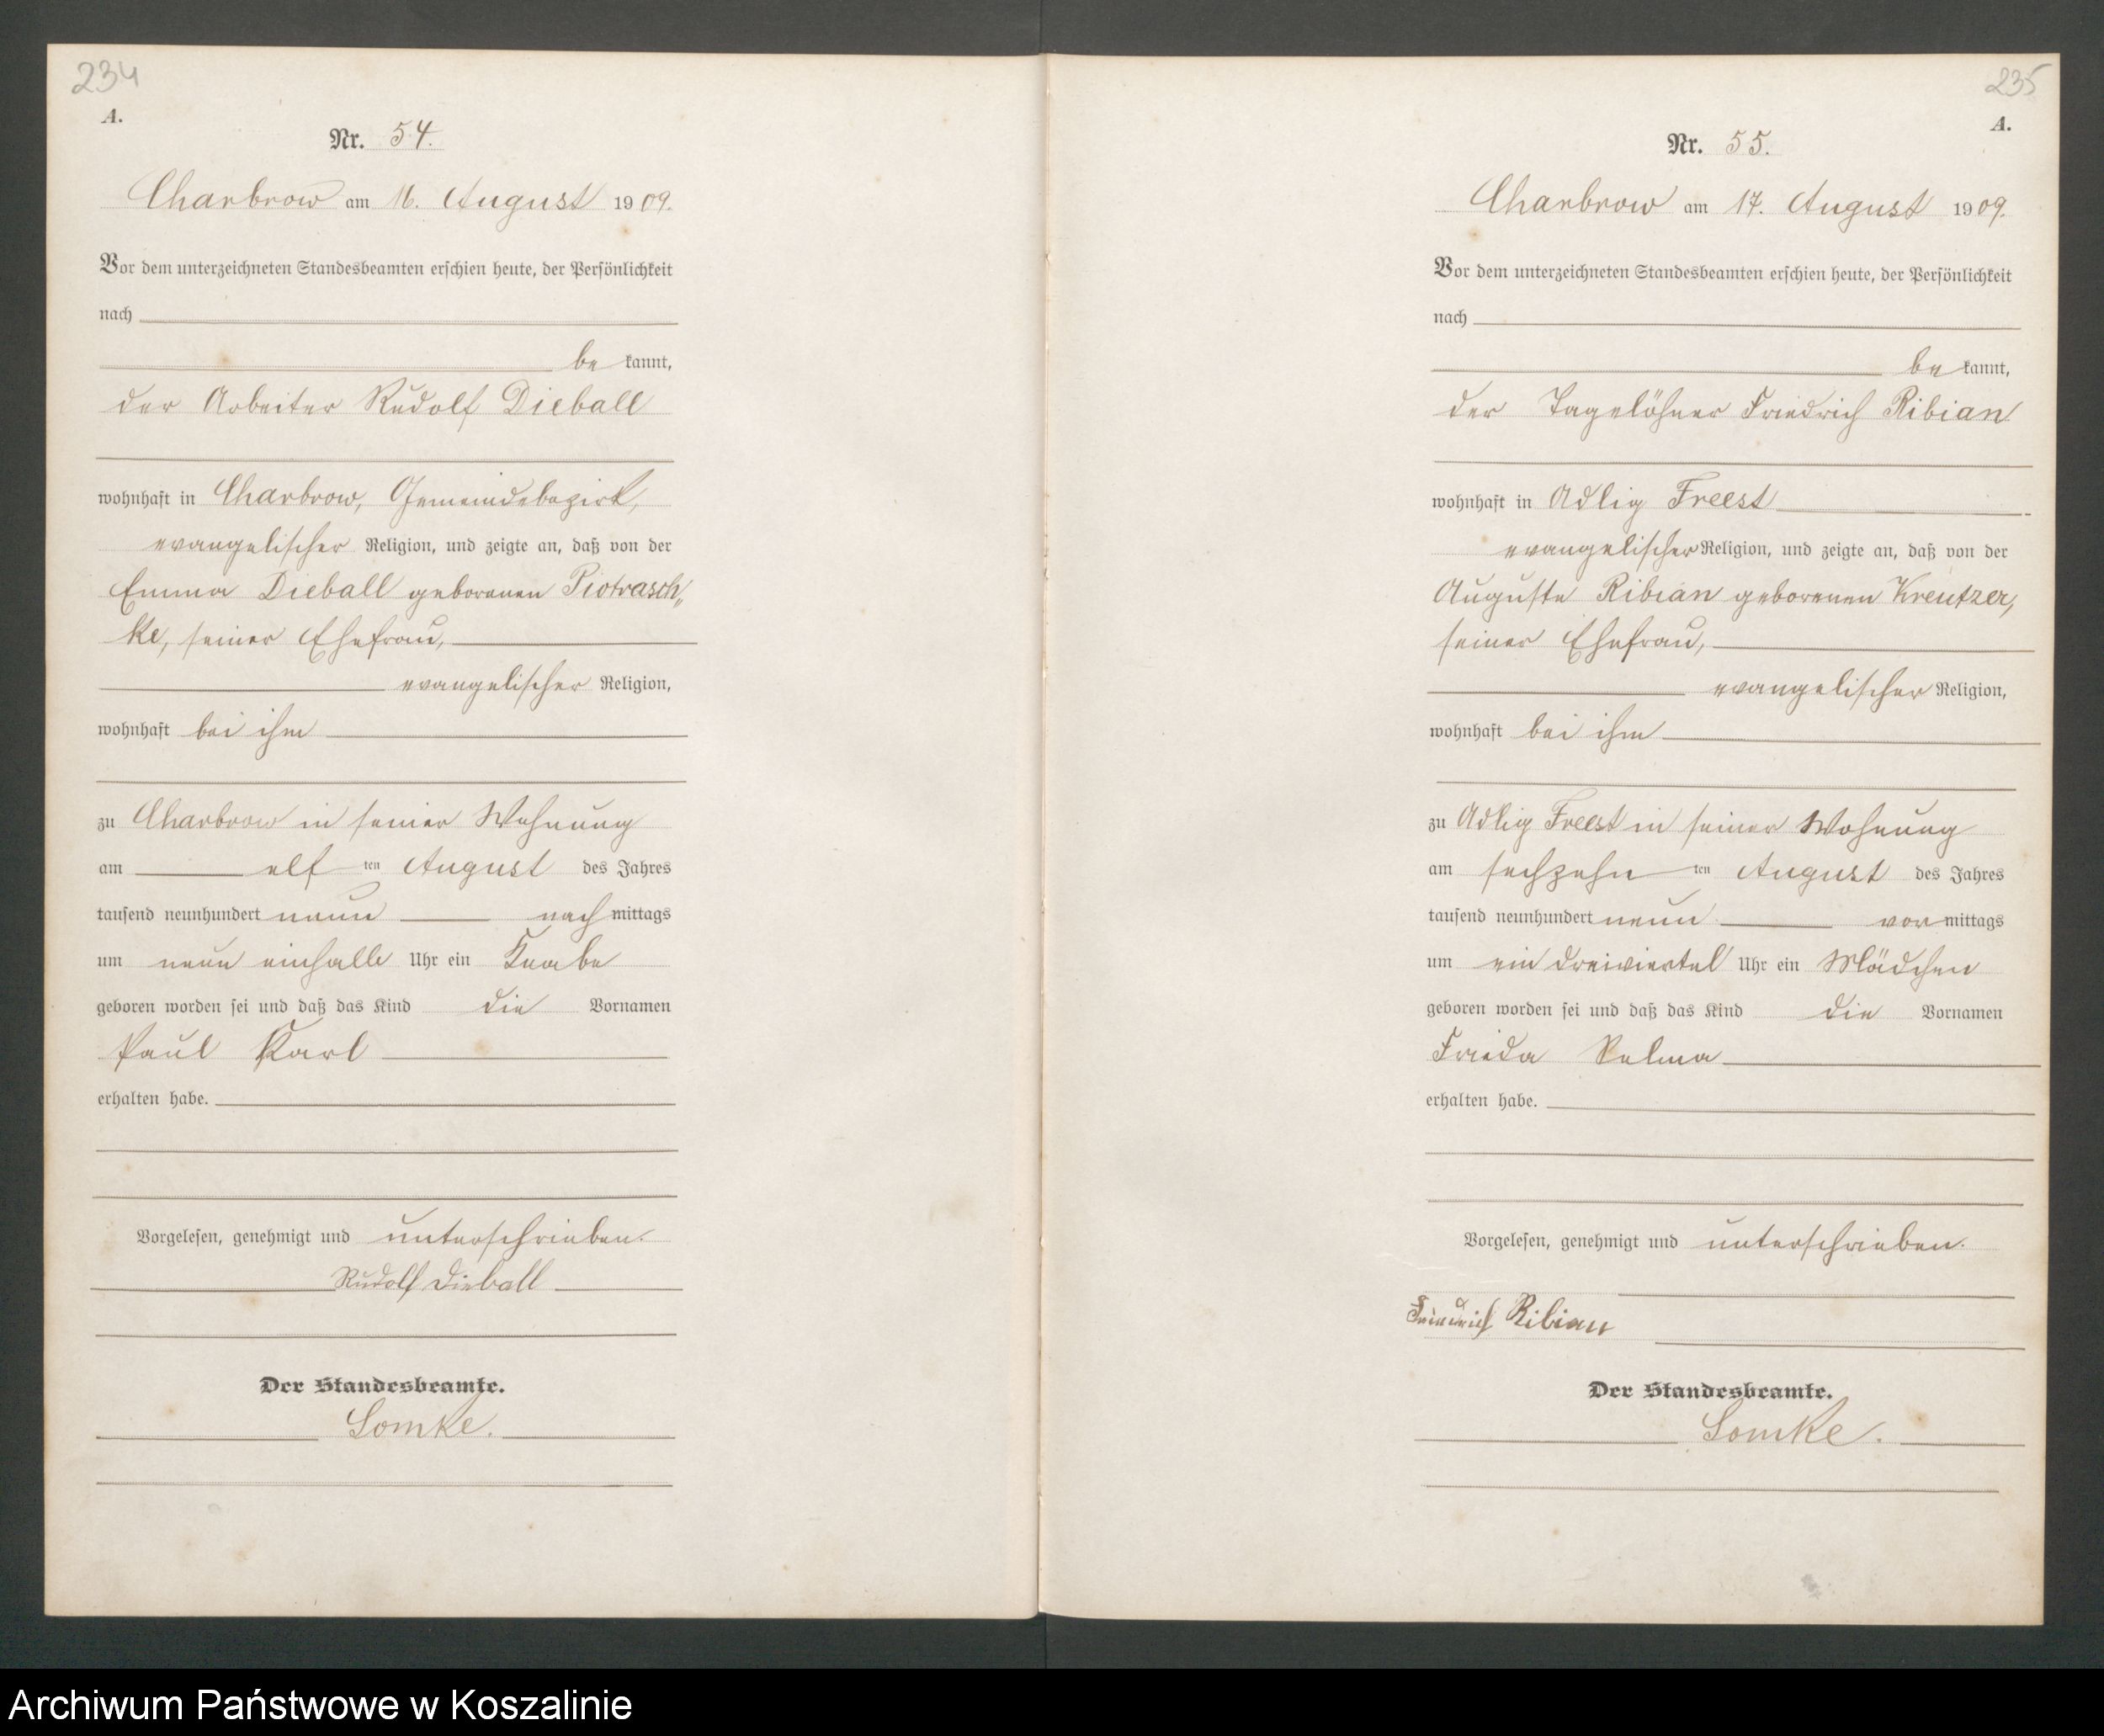 234
A.
Nr. 54.
Charbrow am 16. August 1909.
Vor dem unterzeichneten Standesbeamten erschien heute, der Persönlichkeit
nach
be kannt,
der Arbeiter Rudolf Dieball
wohnhaft in Charbrow, Gemeindebezirk,
evangelischer Religion, und zeigte an, daß von der
Emma Dieball geborenen Piotrasch„
ke, seiner Ehefrau,
evangelischer Religion,
wohnhaft bei ihm
zu Charbrow in seiner Wohnung
am elf ten August des Jahres
tausend neunhundert neun nach mittags
um neun einhalb Uhr ein Knabe
geboren worden sei und daß das Kind die Vornamen
Paul Karl
erhalten habe.
Vorgelesen, genehmigt und unterschrieben.
Rudolf Dieball
Der Standesbeamte.
Lomke.
235
A.
Nr. 55.
Charbrow am 17. August 1909.
Vor dem unterzeichneten Standesbeamten erschien heute, der Persönlichkeit
nach
be kannt,
der Tagelöhner Friedrich Ribian
wohnhaft in Adlig Freest
evangelischer Religion, und zeigte an, daß von der
Auguste Ribian geborenen Kreutzer,
seiner Ehefrau,
evangelischer Religion,
wohnhaft bei ihm
zu Adlig Freest in seiner Wohnung
am sechzehn ten August des Jahres
tausend neunhundert neun vor mittags
um ein dreiviertel Uhr ein Mädchen
geboren worden sei und daß das Kind die Vornamen
Frieda Selma
erhalten habe.
Vorgelesen, genehmigt und unterschrieben.
Friedrich Ribian
Der Standesbeamte.
Lomke.
Archiwum Państwowe w Koszalinie